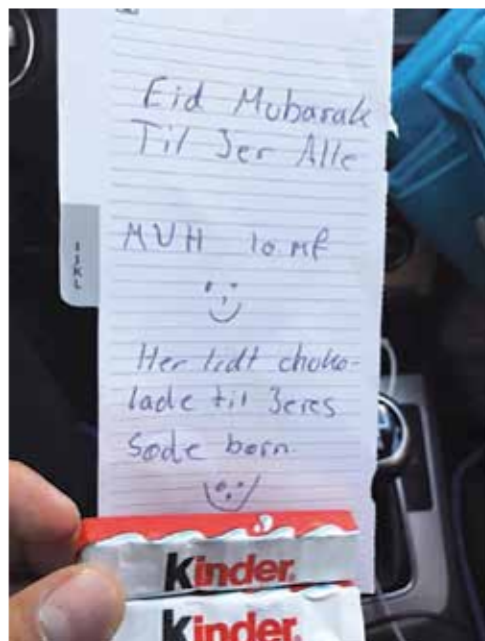 Eid Mubarak
Til Jer Alle
MVH 10 mf
IJKL
Her lidt choko-
lade til Jeres
Søde børn.
kinder
kinder